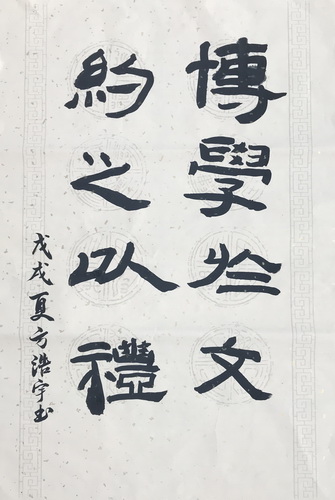 博學於文
約之以禮
戊戌夏方浩宇书